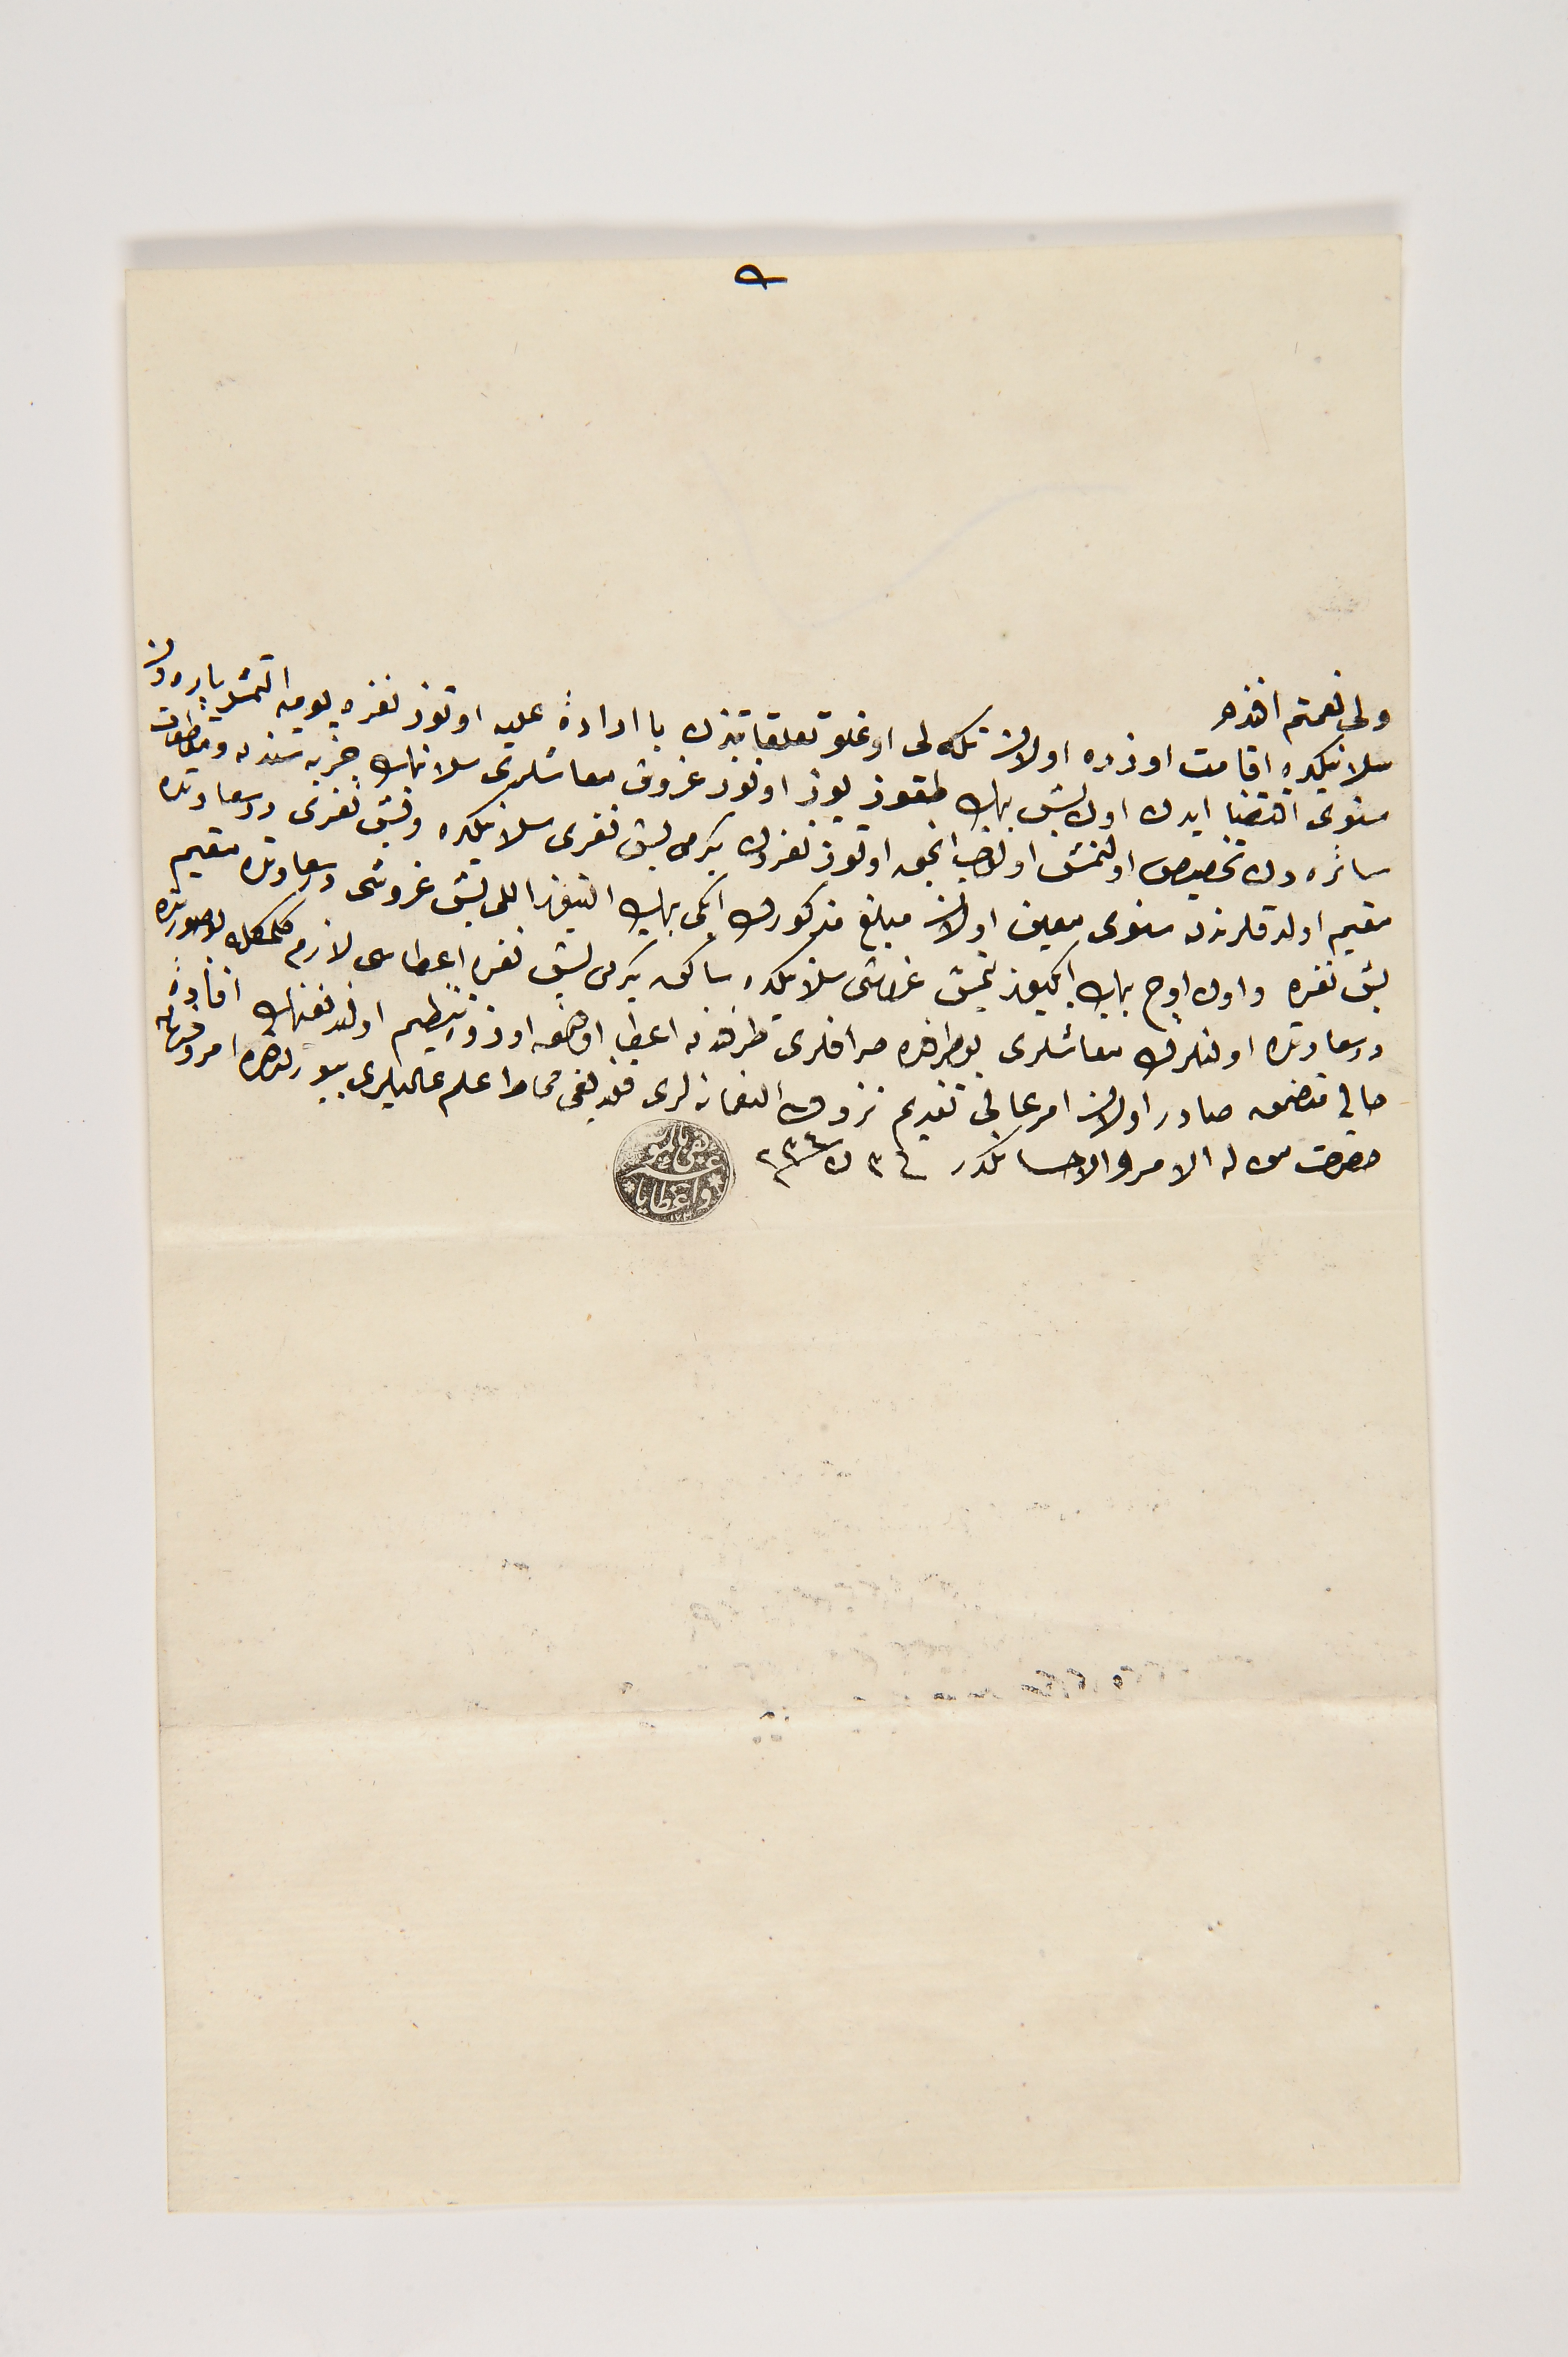 ولی نعمتم افندم
سلانیکده اقامت اوزره اولان تکه لی اوغلو تعلقاتندن با ارادۀ علیه اوتوز نفره یومیه التمشر پاره دن
سنوی اقتضا ایدن اون بش بیك طقوز یوز اوتوز غروش معاشلری سلانیك جزیه سندن و مقاطعات
سائره دن تخصیص اولنمش اولوب انجق اوتوز نفردن یکرمی بش نفری سلانیکده و بش نفری درسعادتده
مقیم اولدقلرندن سنوی معین اولان مبلغ مذکورك ایکی بیك التیوز اللی بش غروشی درسعادتده مقیم
بش نفره و اون اوچ بیك ایکیوز یتمش بش غروشی سلانیکده ساکن یکرمی بش نفره اعطاسی لازم کلمکله بو صورتده
درسعادتده اولنلرك معاشلری بو طرفده صرافلری طرفندن اعطا اولنمق اوزره تنظیم اولندیغنك افادۀ
حالی متضمن صادر اولان امر عالی تقدیم نزد ولی النعمانه لری قلندیغی محاط علم عالیلری بیورلدقده امر و فرمان
حضرت من له الامر والاحسانکدر فی ٣ ن سنه ٢٣٤